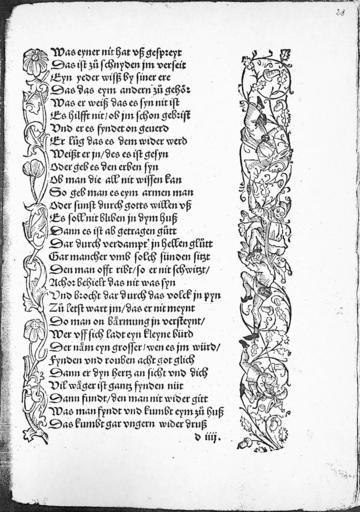 28
Was eyner nit hat vß gespreyt
Das ist zů schnyden jm verseit
Eyn yeder wissß by siner ere
Das das eym andern zů gehőr
Was er weiß das es syn nit ist
Es hilfft nit / ob jm schon gebrist
Vnd er es fyndet on geuerd
Er lůg das es dem wider werd
Weißt er jn / des es ist gesyn
Oder geb es den erben syn
Ob man die all nit wissen kan
So geb man es eym armen man
Oder sunst durch gotts willen vß
Es soll nit bliben in dym huß
Dann es ist ab getragen gůtt
Dar durch verdampt jn hellen glůtt
Gar mancher vmb solch sünden sitzt
Den man offt ribt / so er nit schwitzt /
Achor behielt das nit was syn
Vnd brocht dar durch das volck jn pyn
Zů letst wart jm / das er nit meynt
Do man on bärmung jn versteynt /
Wer vff sich ladt eyn kleyne bürd
Der näm eyn grosser / wen es jm würd /
Fynden vnd rouben acht got glich
Dann er dyn hertz an sicht vnd dich
Vil wäger ist gantz fynden nüt
Dann fundt / den man nit wider gütt
Was man fyndt vnd kumbt eym zů huß
Das kumbt gar vngern wider druß
d iiii.